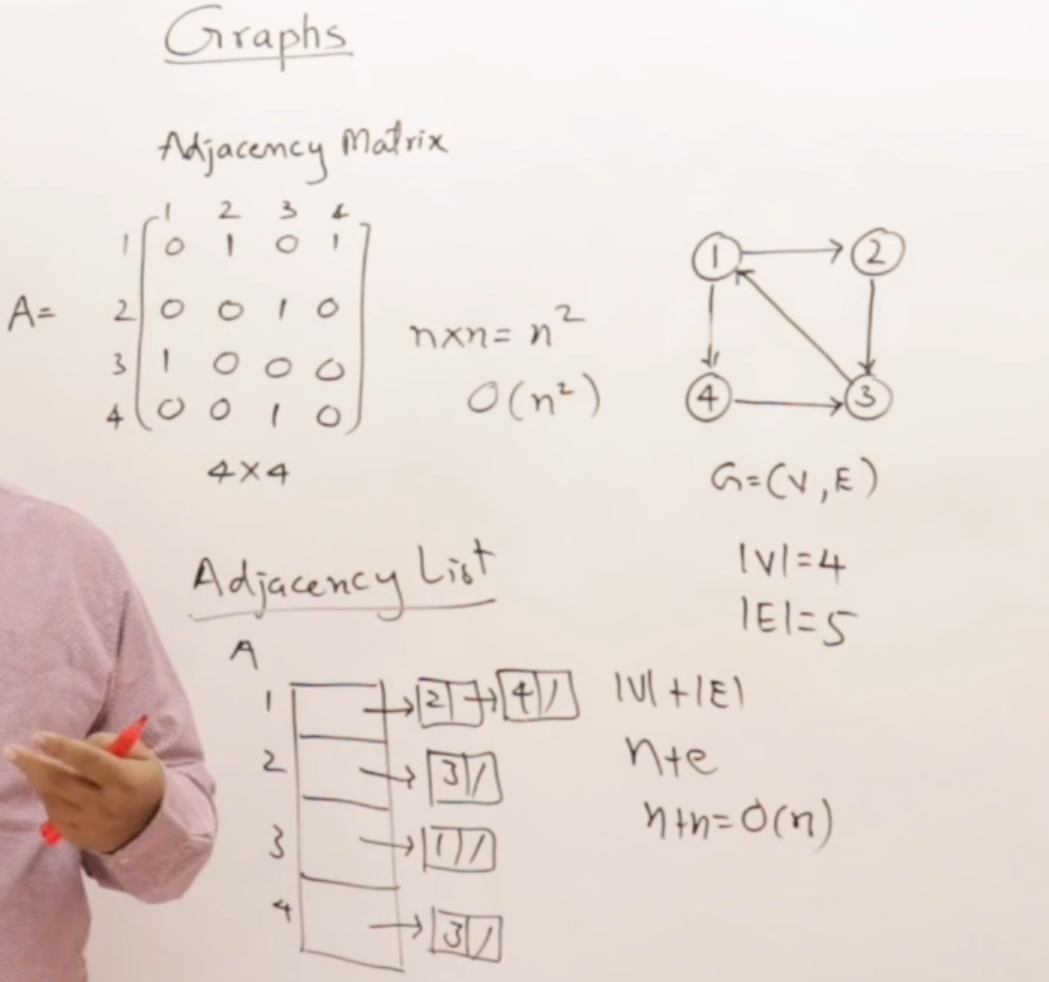 Graphs
Adjacency Matrix
1 2 3 4
1 0 1 0 1
A= 2 0 0 1 0
3 1 0 0 0
4 0 0 1 0
4×4
n×n= n²
O(n²)
1 2
4 3
G=(V,E)
|V|=4
|E|=5
Adjacency List
A
1 2 4 /
2 3 /
3 1 /
4 3 /
|V|+|E|
n+e
n+n=O(n)